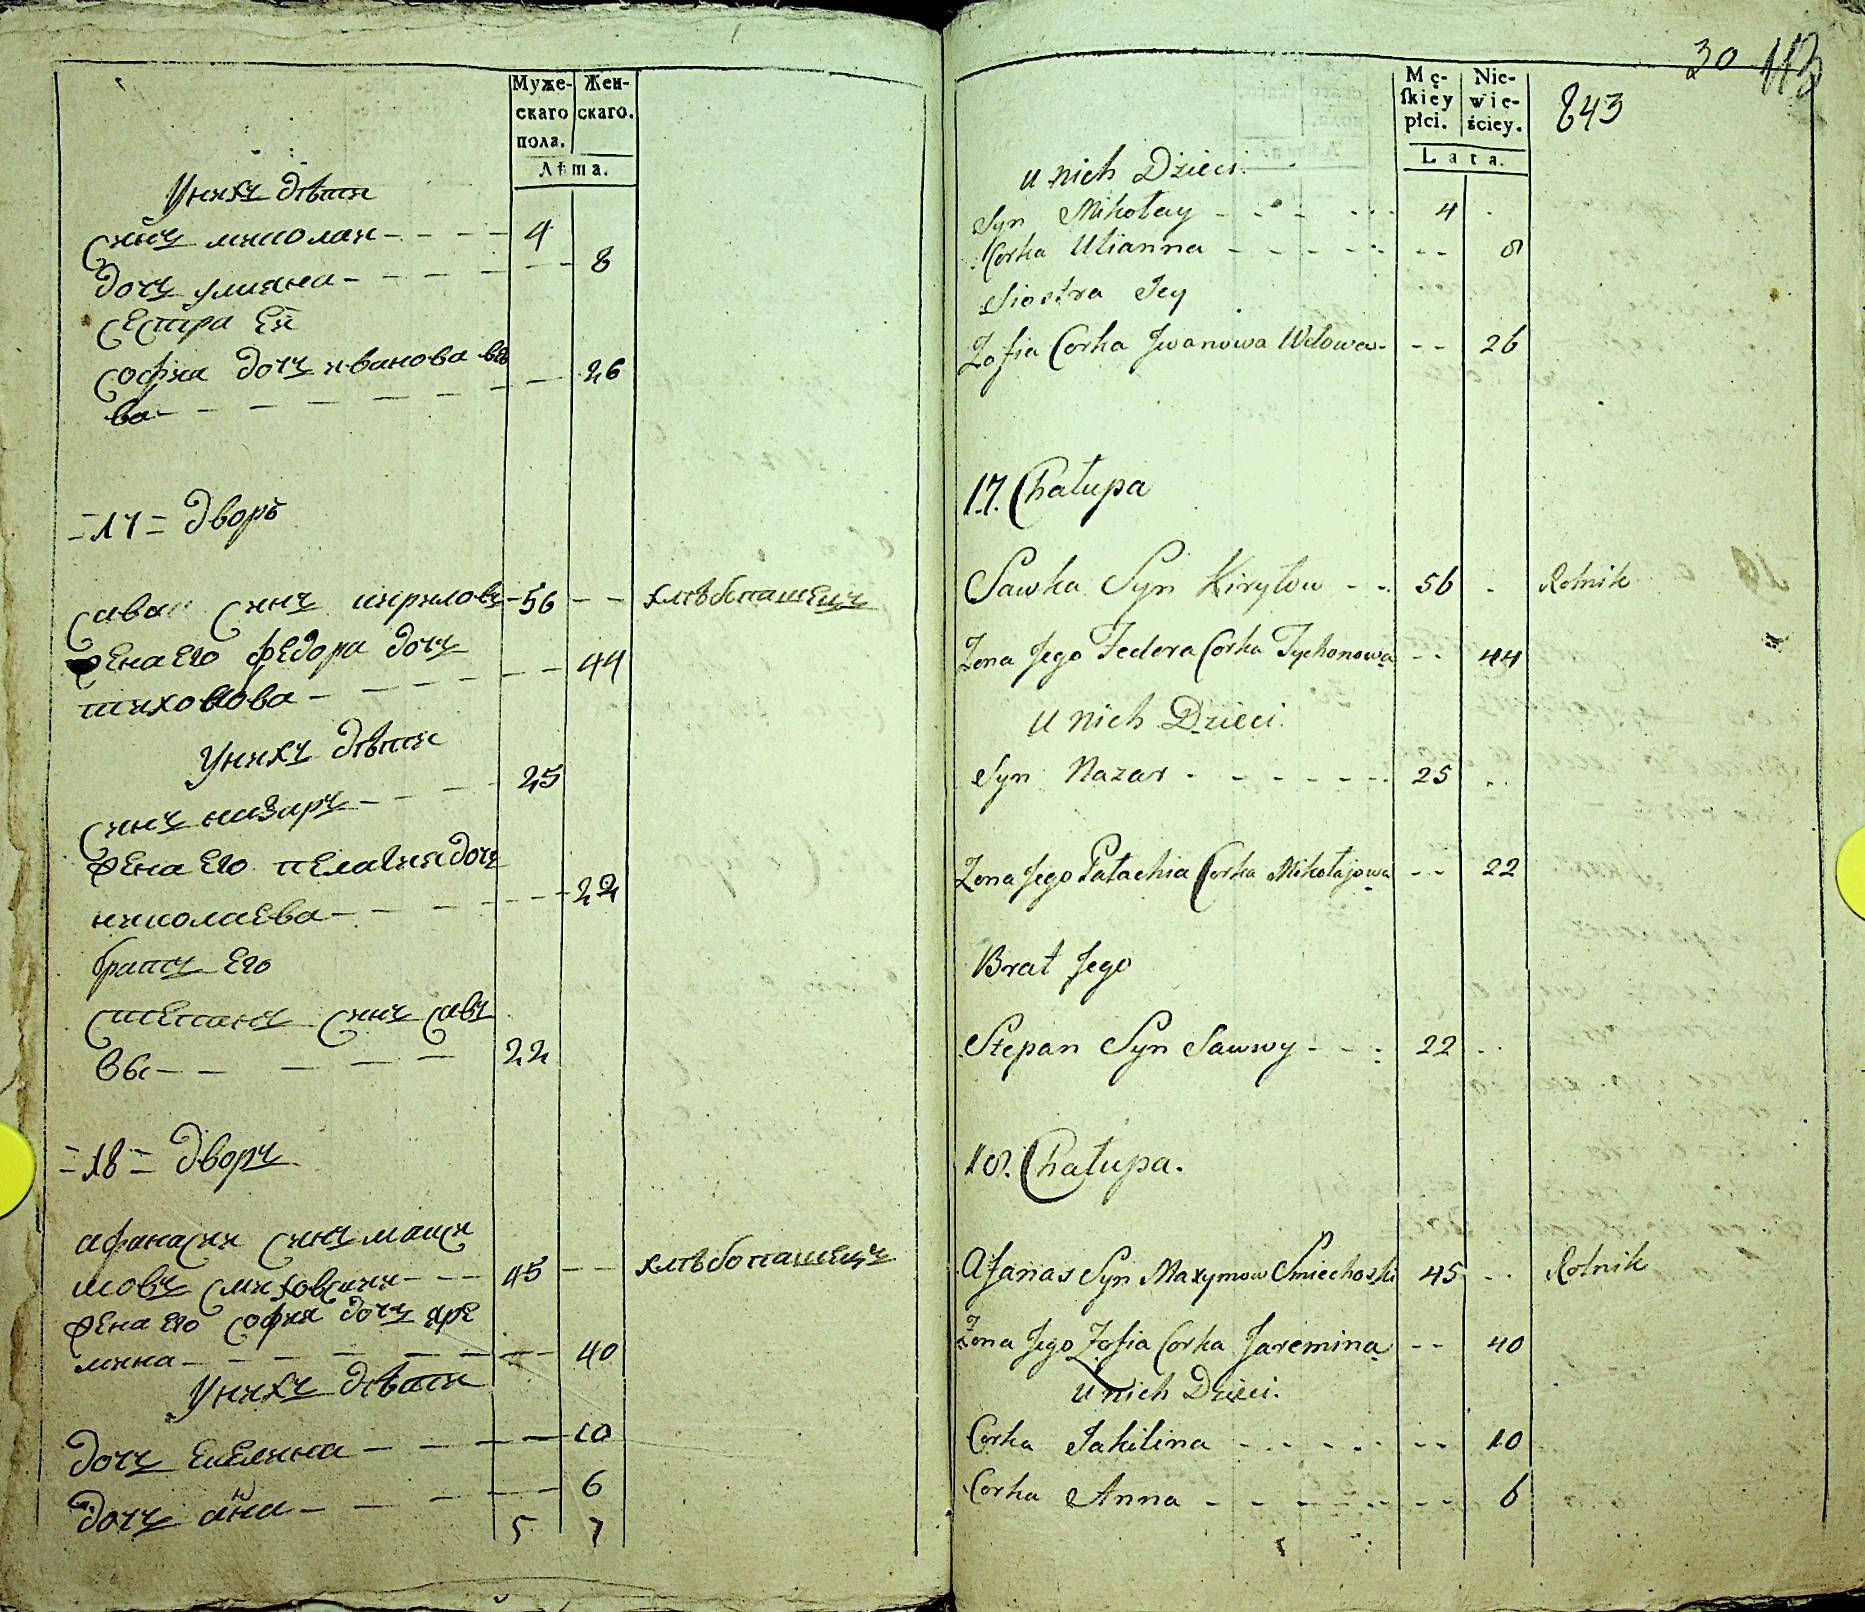 Муже-
скаго
пола.
Жен-
скаго.
Лѣта.
У нихъ дѣти
Синъ миколаи - - - - 4
дочъ улияна - - - - - - 8
сестра Ей
софия дочъ иванова вдо
ва - - - - - - - - 26
=17= дворъ
сава синъ кириловъ - 56 - - хлѣбопашецъ
жена Его федора дочъ
тихонова - - - - - - - 44
У нихъ дѣти
Синъ назаръ - - - - 25
жена Его пелагия дочъ
николаева - - - - - - - 22
братъ Его
степанъ синъ сав
вы - - - - - 22
=18= дворъ
афанасии синъ макси
мовъ смиховскии - - - 45 - - хлѣбопашецъ
жена Его софия дочъ яре
мина - - - - - - - - 40
У нихъ дѣти
дочъ Екелина - - - - 10
дочъ анна - - - - - 6
5 7
30 113
Mę-
skiey
płci.
Nie-
wie-
ściey.
843
Lata.
u nich Dzieci.
Syn Mikołay - - - - - - 4 -
Corka Ulianna - - - - - - - - 8
Siostra Jey
Zofia Corka Jwanowa Wdowa - - - 26
17. Chałupa
Sawka Syn Kiryłow - - - 56 - Rolnik
Zona Jego Fedora Corka Tychonowa - - 44
u nich Dzieci.
Syn Nazar - - - - - - - 25 - -
Zona Jego Pałachia Corka Mikołajowa - - 22
Brat Jego
Stepan Syn Sawwy - - - 22 - -
18. Chałupa.
Afanas Syn Maxymow Smiechoski 45 - - Rolnik
Zona Jego Zofia Corka Jaremina - - 40
u nich Dzieci.
Corka Jakilina - - - - - - - 10
Corka Anna - - - - - - - - 6